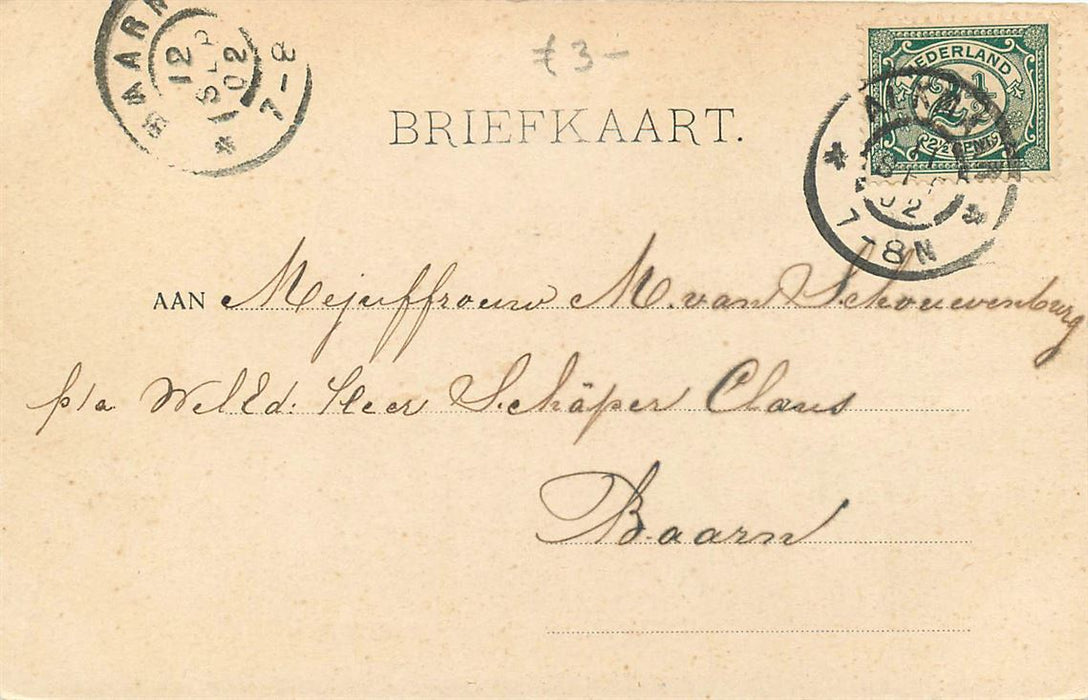 BAARN
12
SEP
02
7-8
£3-
NEDERLAND
2½
2½ CENT
02
7-8N
BRIEFKAART.
AAN Mejuffrouw M. van Schouwenburg
p/a WelEd. Heer Schäper Claus
Baarn